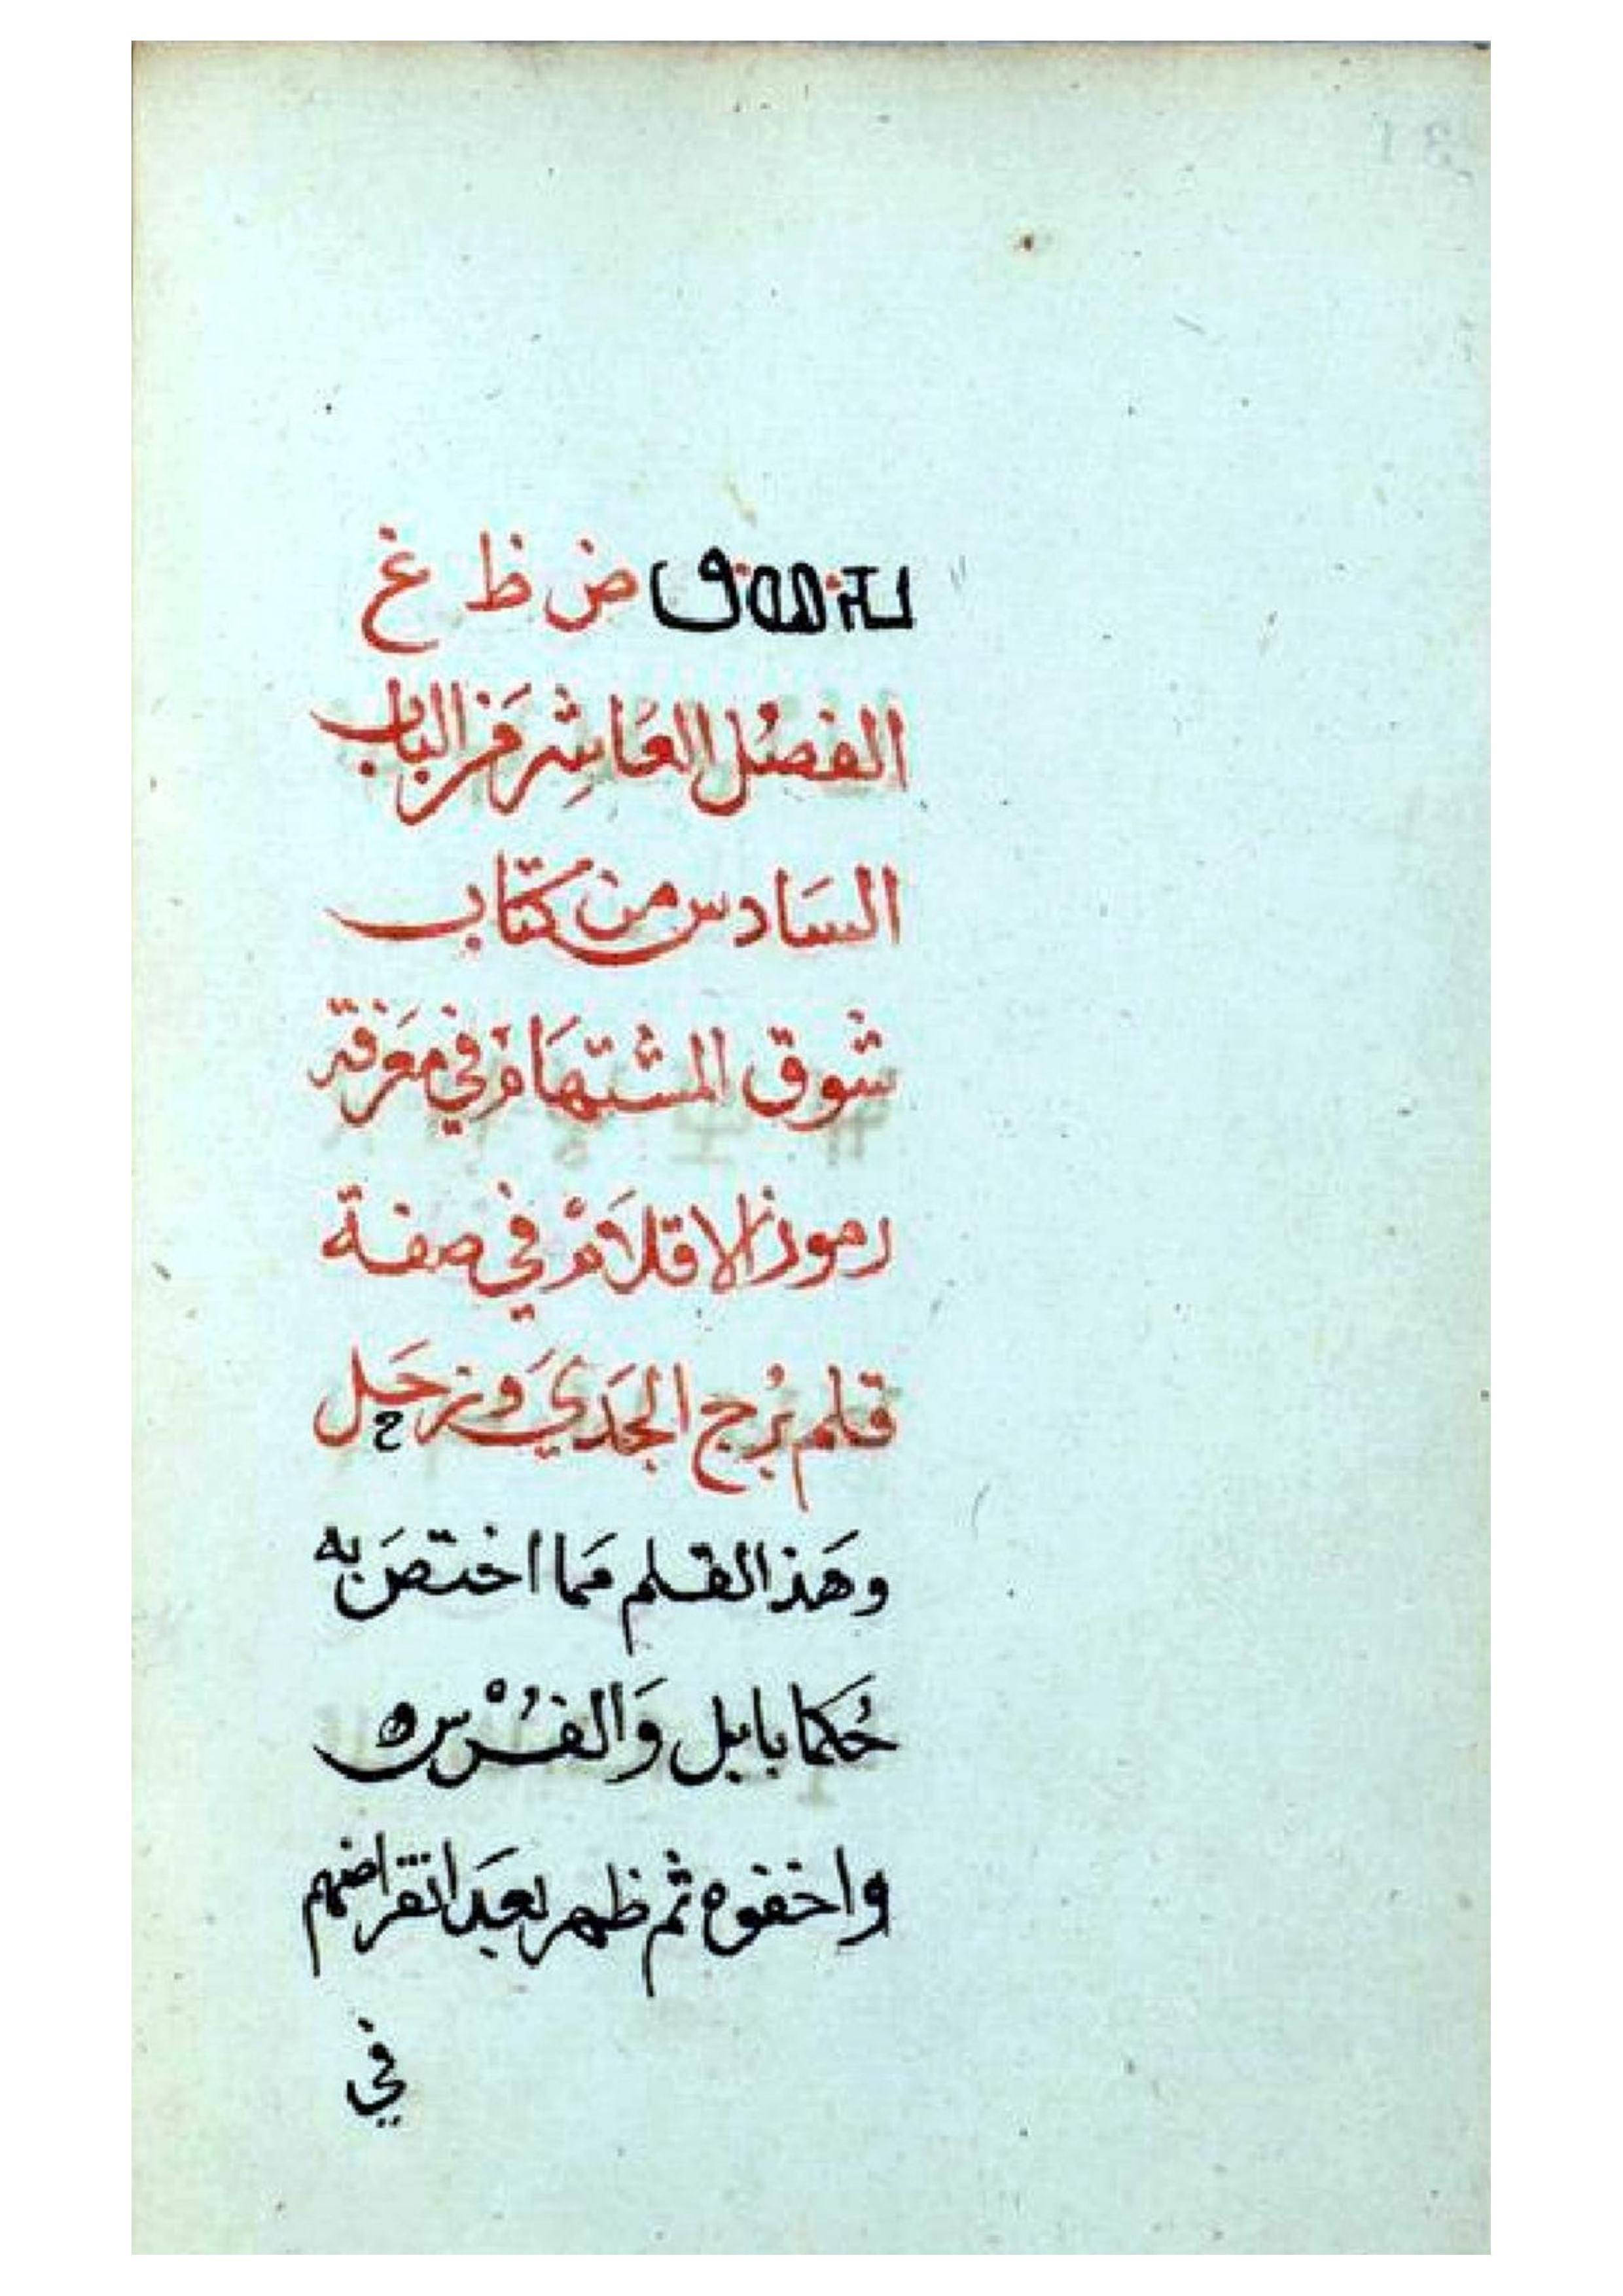 ض ظ غ
الفصُل العَاشِر مَن الباب
السَادس من كتاب
شوق المشتهَامْ في معَرفة
رموز الاقلَامْ في صفة
قلم بُرج الجَدي وَزحَل
وهَذ القلم مَما اختصَ به
حُكما بابل وَالفُرْس
واخفوه ثم ظهر بعَد انقراضهم
في